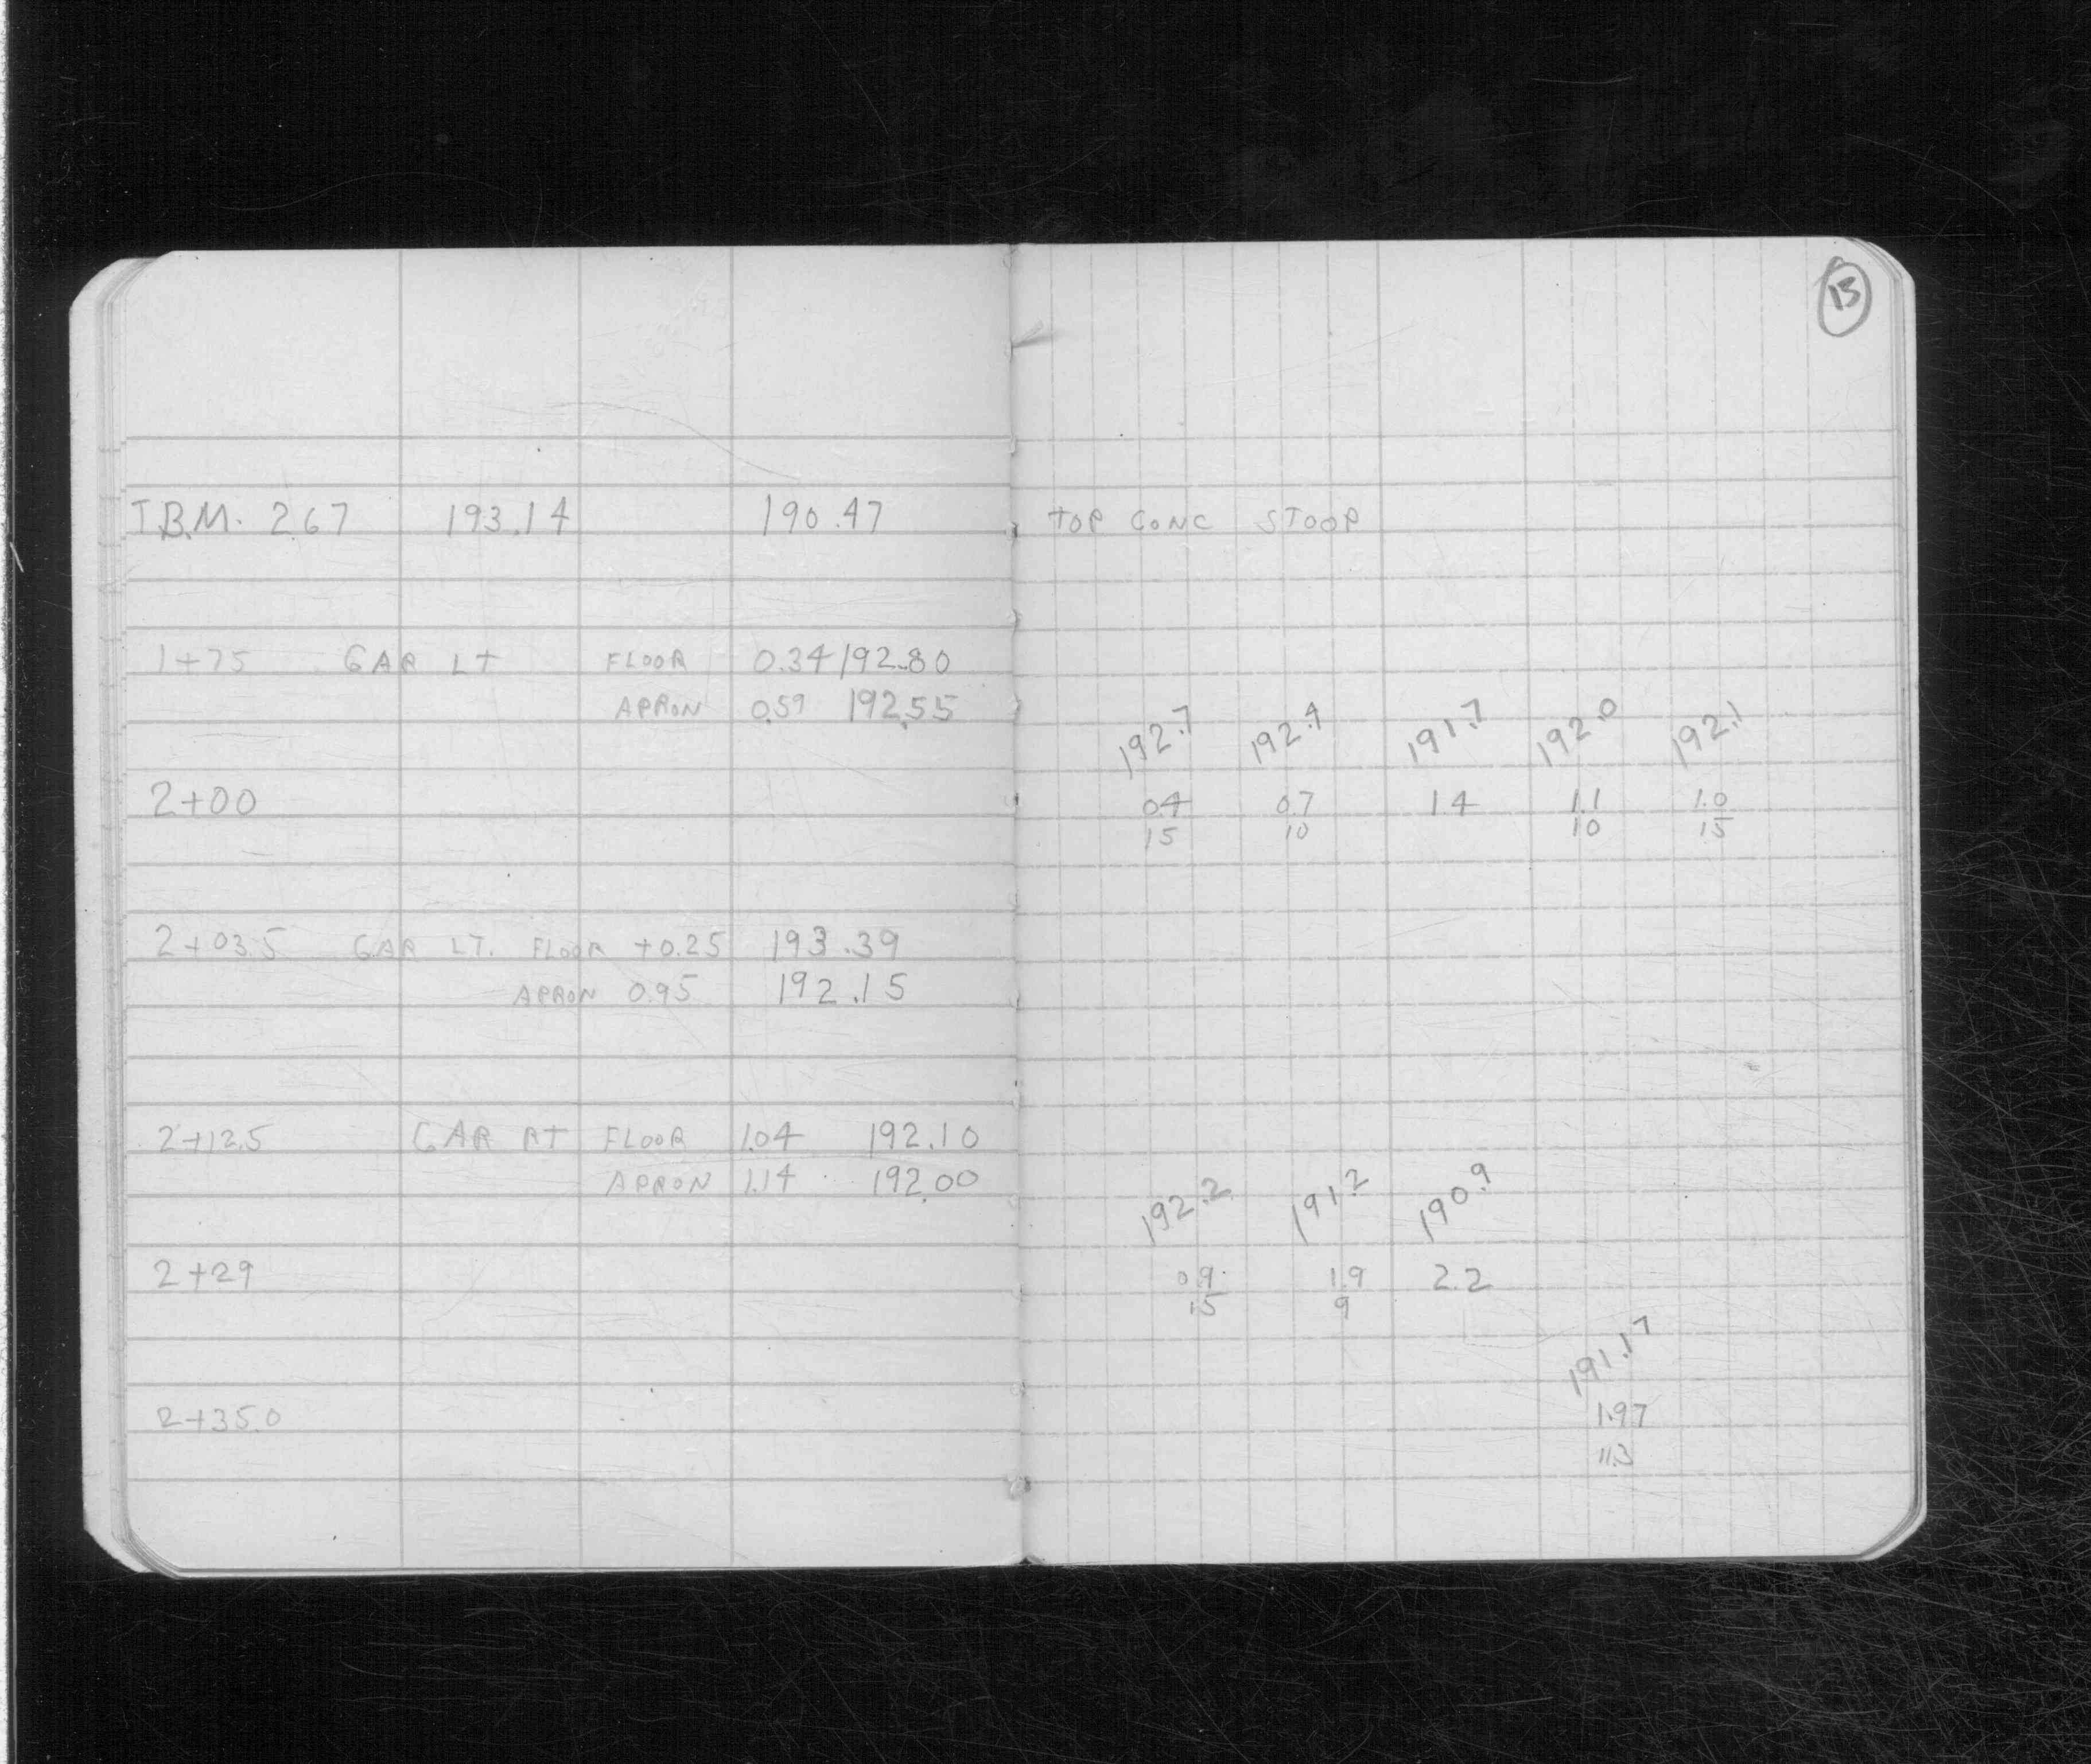 13
T.B.M. 2.67 193.14 190.47 TOP CONC STOOP
1+75 GAR LT FLOOR 0.34 192.80
APRON 0.59 192.55
192.7 192.4 191.7 192.0 192.1
2+00 0.4 0.7 1.4 1.1 1.0
15 10 10 15
2+03.5 GAR LT. FLOOR +0.25 193.39
APRON 0.95 192.15
2+12.5 GAR RT FLOOR 1.04 192.10
APRON 1.14 192.00
192.2 191.2 190.9
2+29 0.9 1.9 2.2
15 9
191.17
2+35.0 1.97
11.3